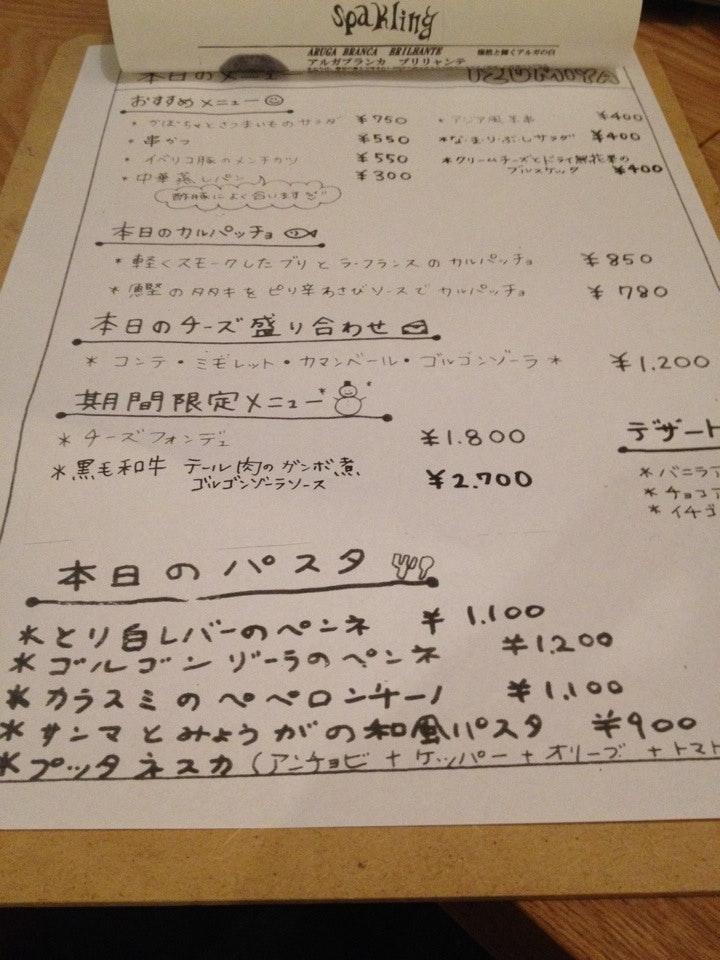 Spakling
ARUGA BRANCA BRILHANTE
アルガブランカ ブリリャンテ
本日のメニュー
おすすめメニュー
* かぼちゃとさつまいものサラダ ¥750
* 串かつ ¥550
* イベリコ豚のメンチカツ ¥550
* 中華蒸しパン♪ ¥300
酢豚によく合います
* アジア風 ¥400
* なまりぶしサラダ ¥400
* クリームチーズとドライ無花果の
ブルスケッタ ¥400
本日のカルパッチョ
* 軽くスモークしたブリとラ・フランスのカルパッチョ ¥850
* 鰹のタタキをピリ辛わさびソースでカルパッチョ ¥780
本日のチーズ盛り合わせ
* コンテ・ミモレット・カマンベール・ゴルゴンゾーラ * ¥1.200
期間限定メニュー
* チーズフォンデュ ¥1.800
* 黒毛和牛 テール肉のガンボ煮
ゴルゴンゾーラソース ¥2.700
デザート
* バニラア
* チョコア
* イチゴ
本日のパスタ
* とり白レバーのペンネ ¥1.100
* ゴルゴンゾーラのペンネ ¥1.200
* カラスミのペペロンチーノ ¥1.100
* サンマとみょうがの和風パスタ ¥900
* プッタネスカ (アンチョビ + ケッパー + オリーブ + トマト